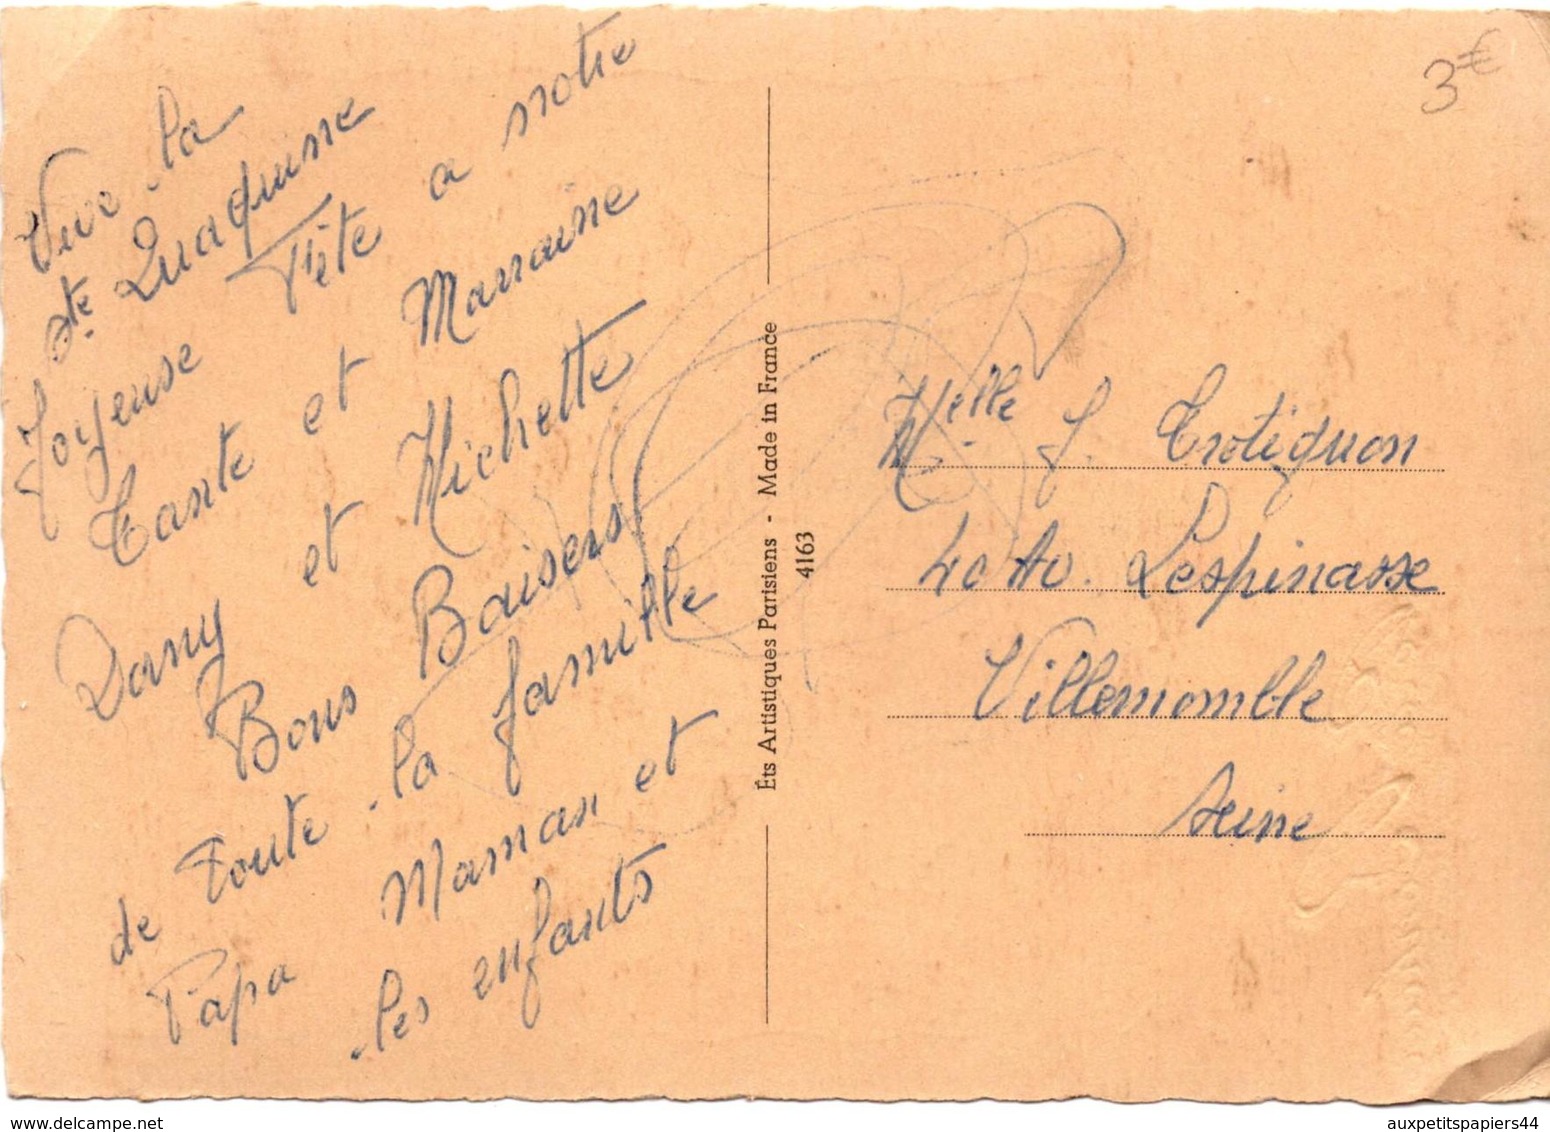 Vive la
Ste Quaquine
Joyeuse Fête a notre
Tante et Marraine
Dany et Michette
Bons Baisers
de toute la famille
Papa Maman et
les enfants
Éts Artistiques Parisiens - Made in France
4163
3€
Melle J. Trotignon
40 Av. Lespinasse
Villemomble
Seine
auxpetitspapiers44